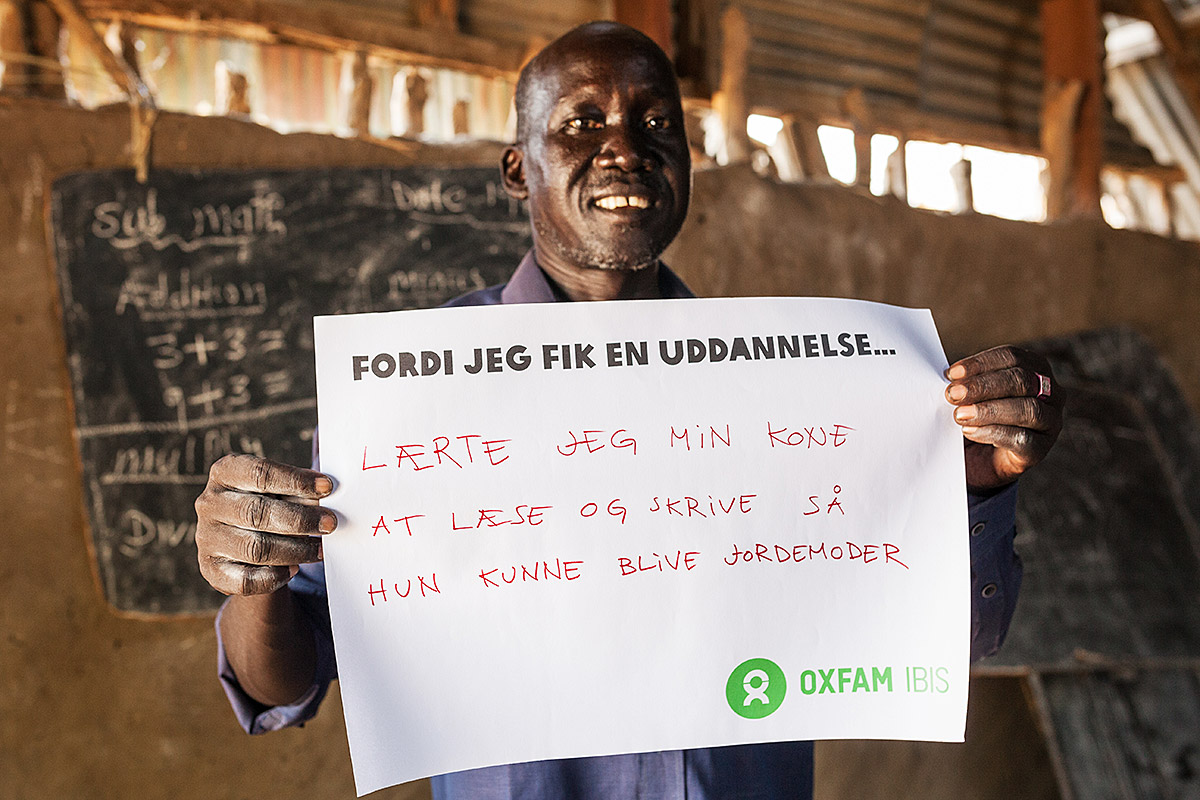 Sub math
Date
Addition
minus
3+3=
9+3=
FORDI JEG FIK EN UDDANNELSE...
LÆRTE JEG MIN KONE
AT LÆSE OG SKRIVE SÅ
HUN KUNNE BLIVE JORDEMODER
OXFAM IBIS